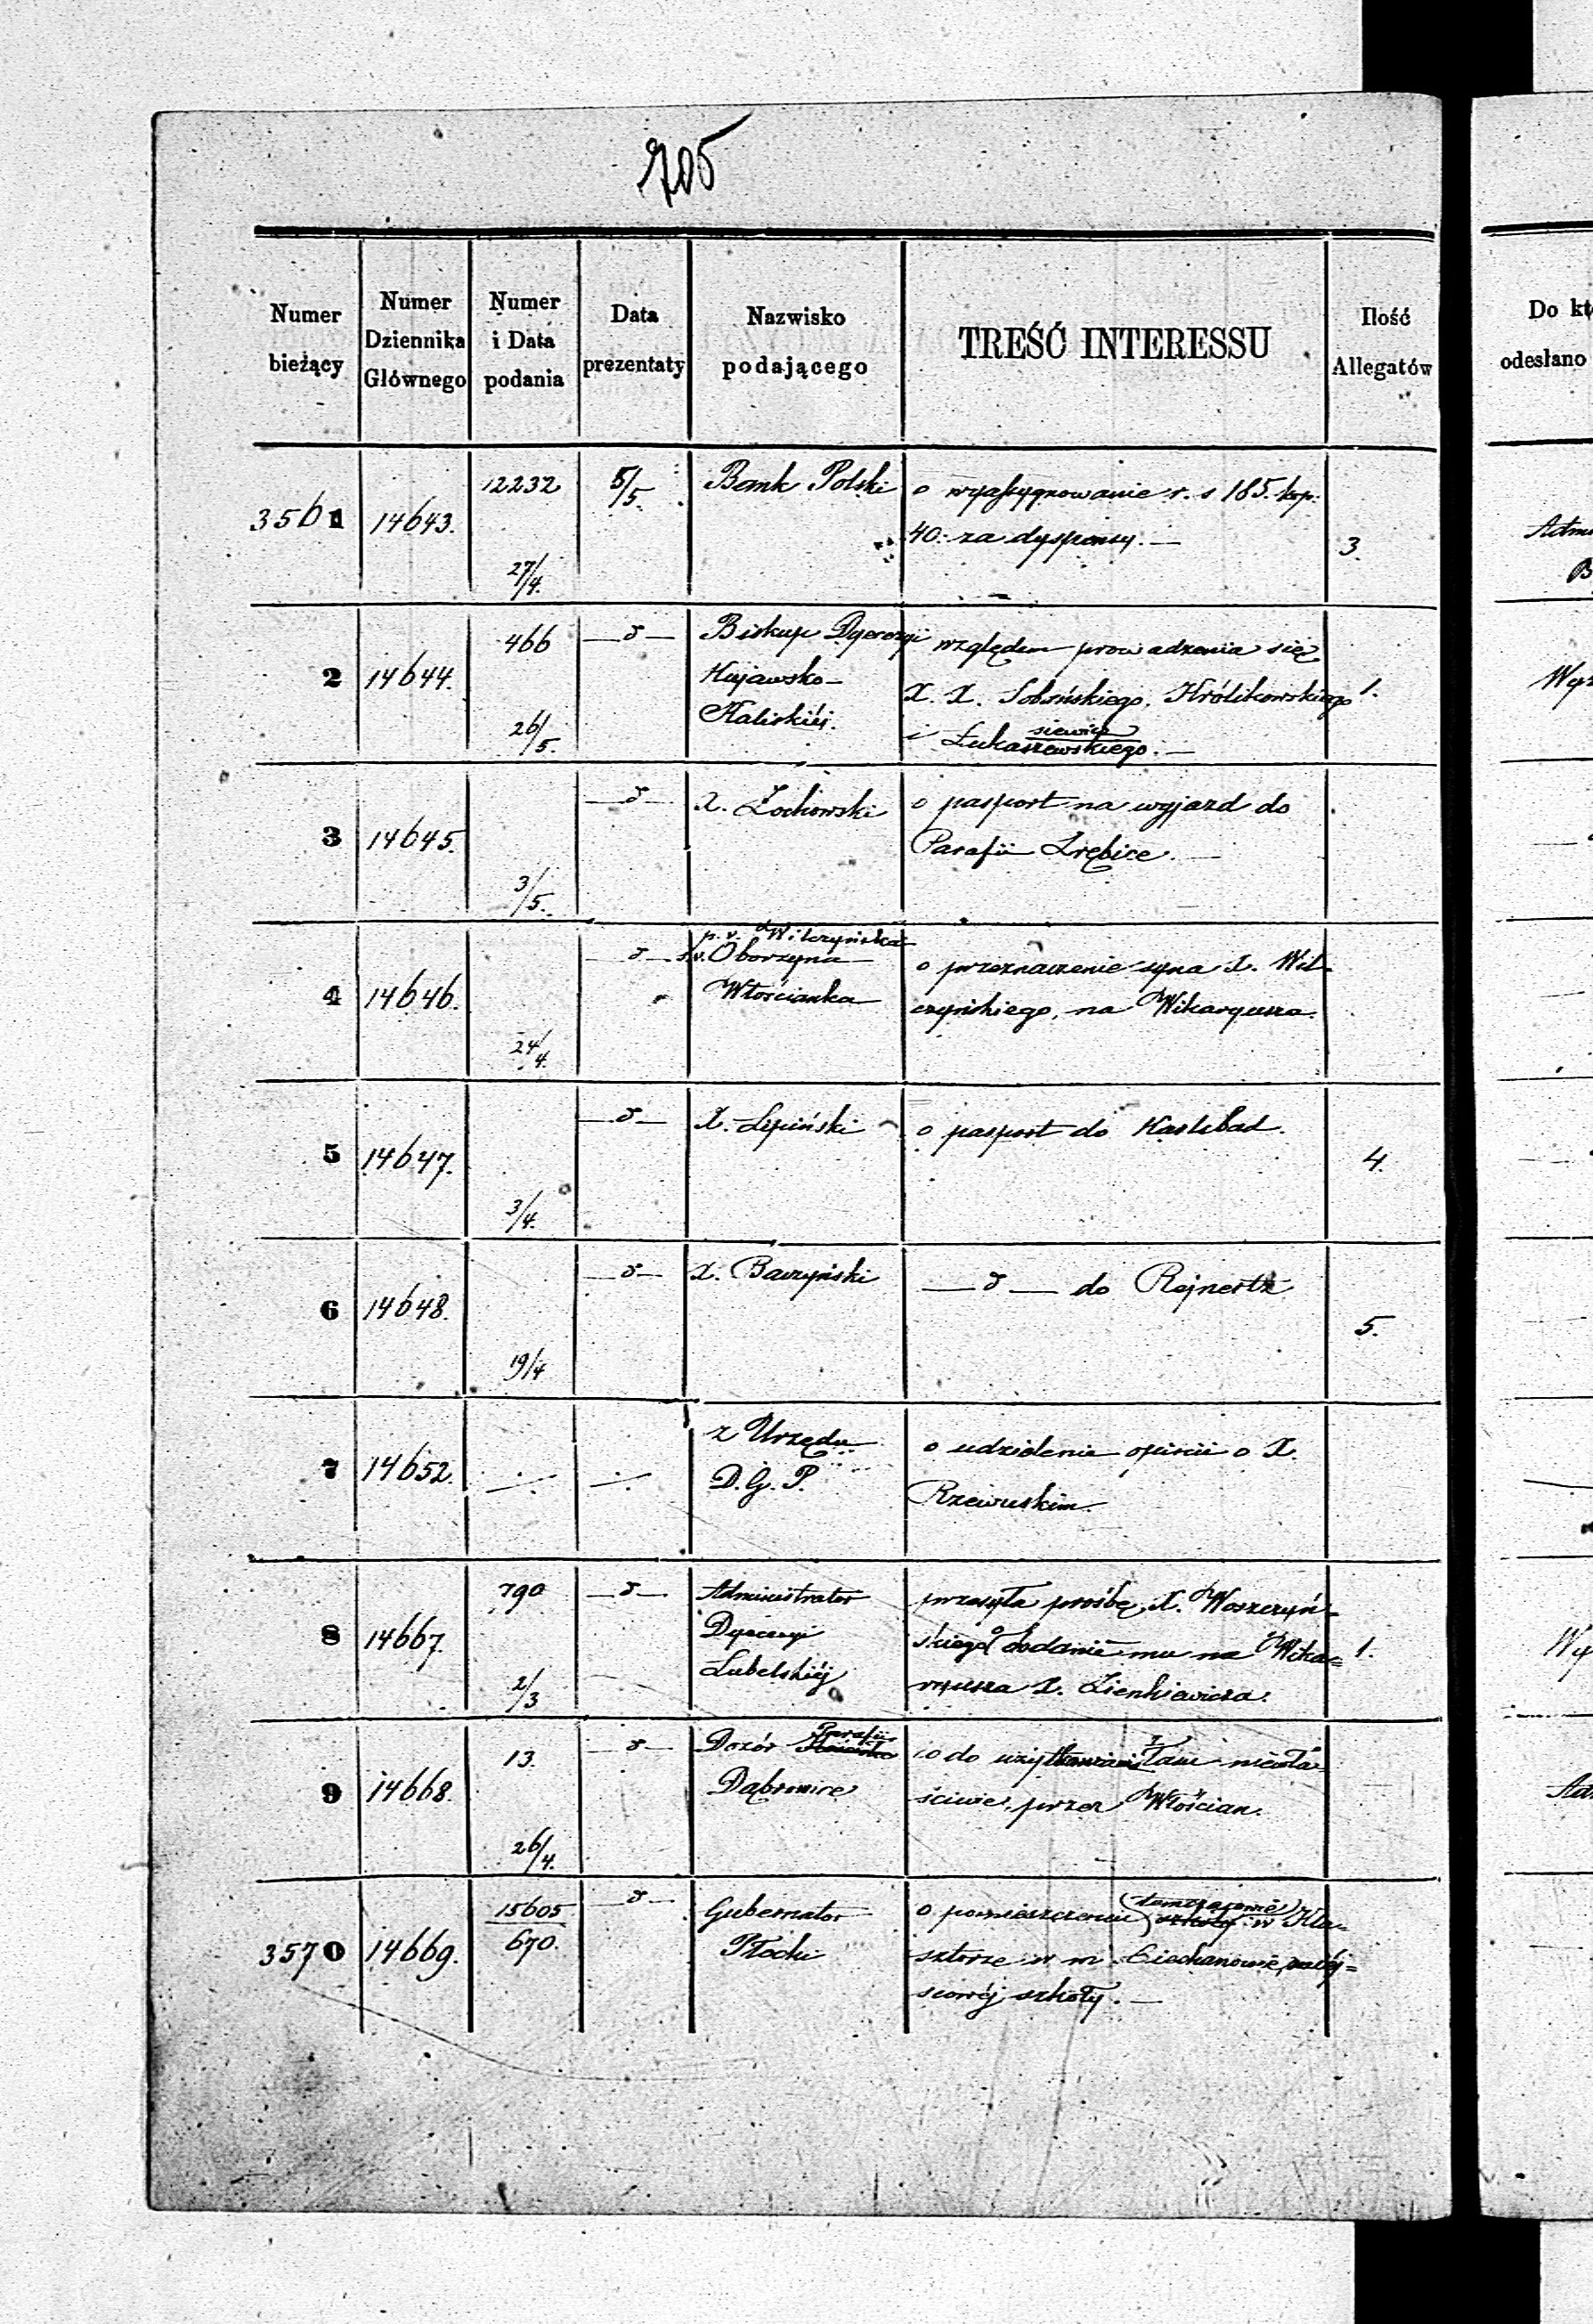 705
Numer bieżący
Numer Dziennika Głównego
Numer i Data podania
Data prezentaty
Nazwisko podającego
TREŚĆ INTERESSU
Ilość Allegatów
Do
odesłano
3561 14643. 12232 27/4. 5/5. Bank Polski o wyassygnowanie r. s 185. kop.
40. za dyspensy. — 3.
2 14644. 466 26/5. — d — Biskup Dyecezyi względem prowadzenia się
Kujawsko- X. X. Sobańskiego, Królikowskiego 1.
Kaliskiéj. siewicz
i Łukaszewskiego. —
3 14645. 3/5. — d — X. Żochowski o pasport na wyjazd do
Parafii Zrębice. —
p. v. Wilczyńska
4 14646. 24/4. — d — s. v. Oborzyna o przeznaczenie syna X. Wil-
Włościanka czyńskiego, na Wikaryusza.
5 14647. 3/4. — d — X. Lipiński o pasport do Karlsbad. 4.
6 14648. 19/4 — d — X. Baczyński — d — do Rejnertz 5.
7 14652. z Urzędu o udzielenie opinii o X.
D. G. P. Rzewuskim.
8 14667. 790 2/3 — d — Administrator przesyła prośbę X. Woszczyń-
Dyecezyi skiego o dodanie mu na Wika= 1.
Lubelskiéj ryusza X. Zienkiewicza.
Parafii
9 14668. 13. 26/4. — d — Dozór co do użytkowania niewła-
Dąbrowice ściwie, przez Włościan.
3570 14669. 15605 670. — d — Gubernator o pomieszczeniu w Kla-
Płocki sztorze w m. Ciechanowie, miéj=
scowéj szkoły. —